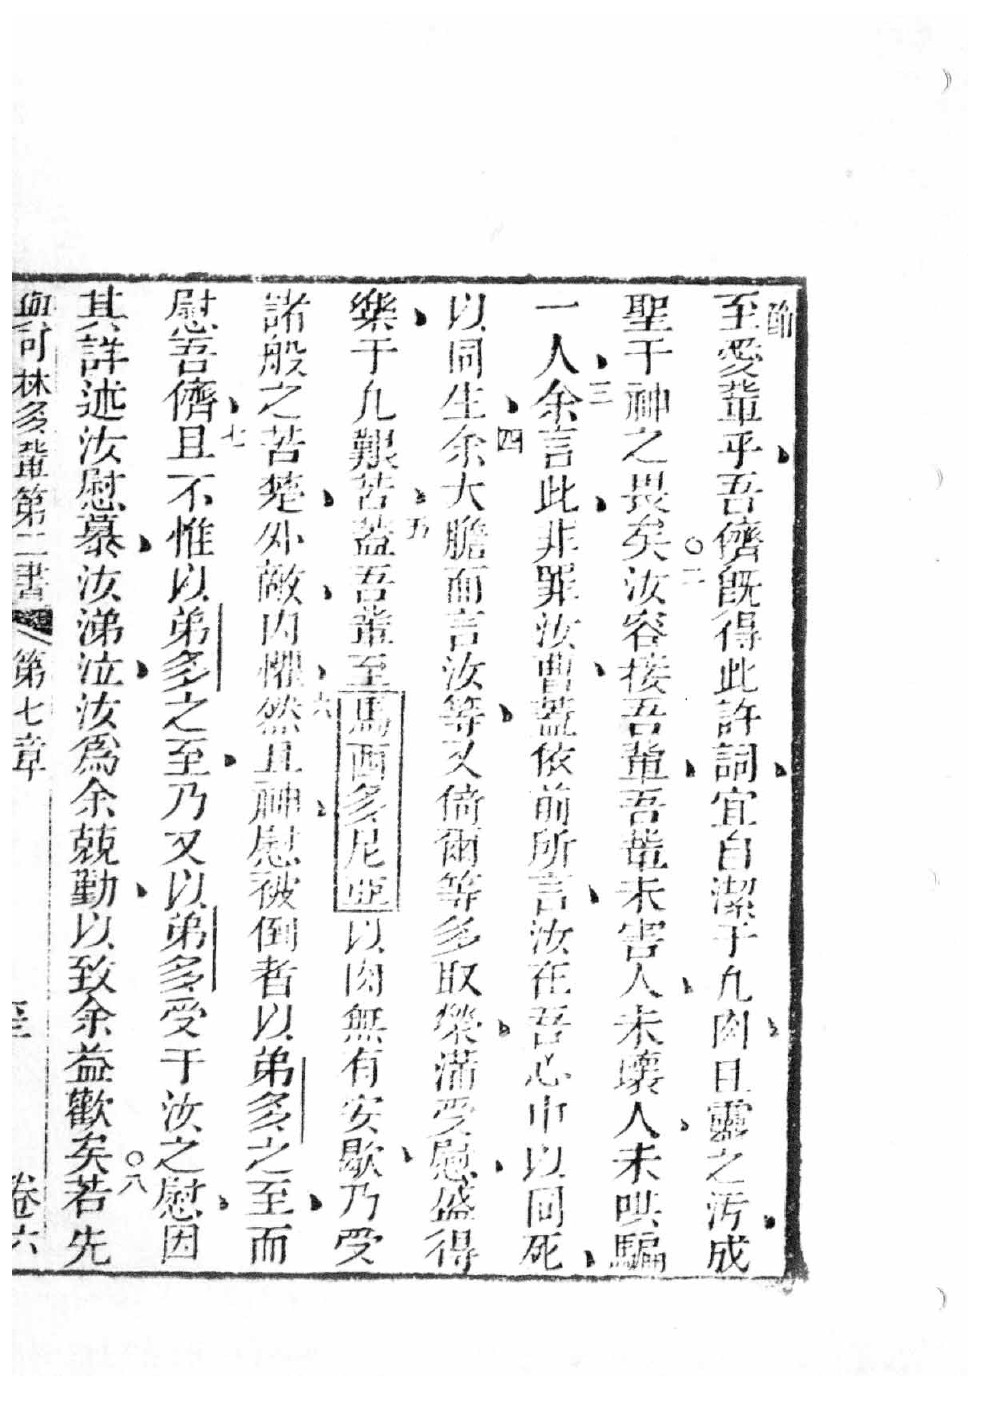 至愛輩乎吾儕既得此許詞宜自潔于凢肉且靈之汚成
聖于神之畏矣○二汝容接吾輩吾輩未害人未壞人未哄騙
一人三余言此非罪汝曹蓋依前所言汝在吾心中以同死
以同生四余大膽面言汝等又倚爾等多取榮滿受慰盛得
樂于凢艱苦五蓋吾輩至馬西多尼亞以肉無有安歇乃受
諸般之苦楚外敵內懼六然且神慰被倒者以弟多之至而
慰吾儕七且不惟以弟多之至乃又以弟多受于汝之慰因
其詳述汝慰慕汝涕泣汝爲余兢勤以致余益歡矣○八若先
與可林多輩第二書 第七章 卷六